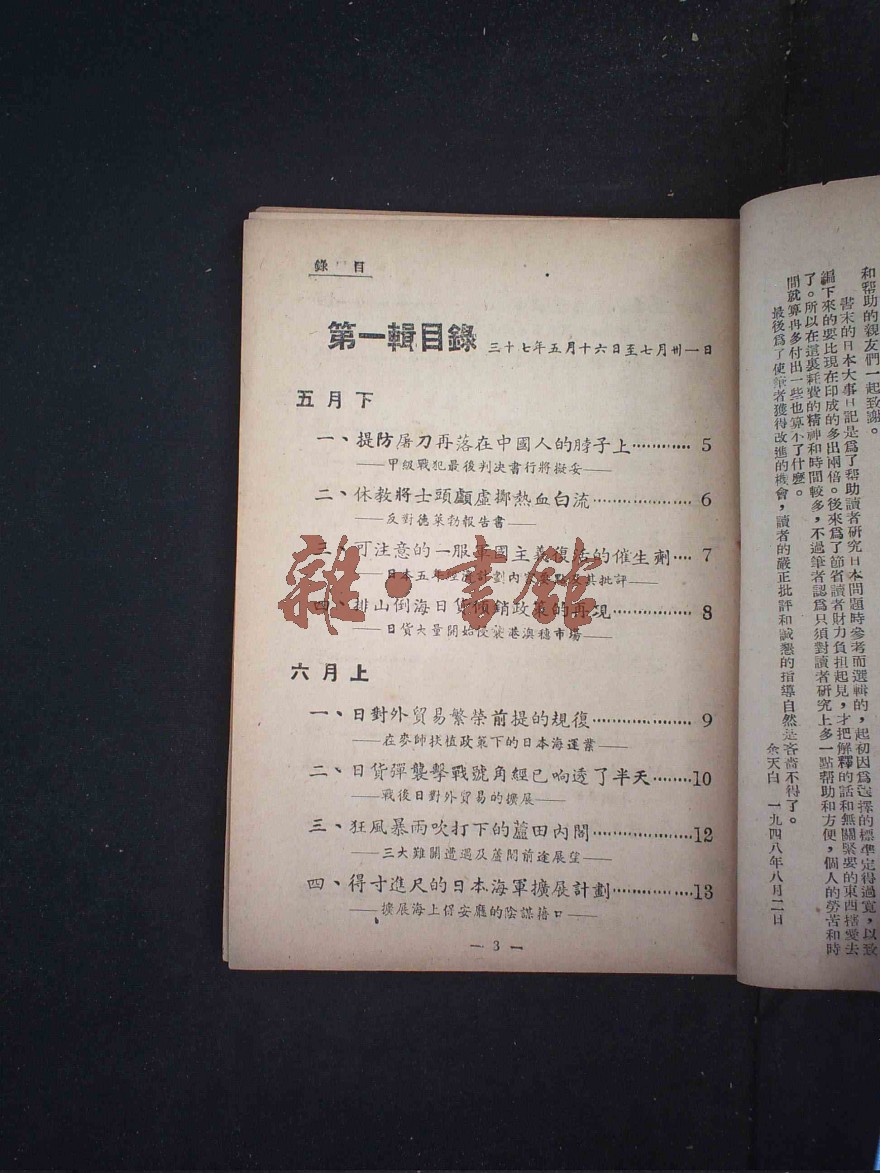 和帮助的親友們一起致謝。
書末的日本大事日記是爲了帮助讀者研究日本問題時參考而選輯的，起初因爲選擇的標準定得過寬，以致
編下來的要比現在印成的多出兩倍。後來爲了節省讀者財力負担起見，才把解釋的話和無關緊要的東西犧愛去
了。所以在這裏耗費的精神和時間較多，不過筆者認爲只須對讀者研究上多一點帮助和方便，個人的勞苦和時
間就算再多付出一些也算不了什麼。
最後爲了使筆者獲得改進的機會，讀者的嚴正批評和誠懇的指導自然是吝嗇不得了。
余天白 一九四八年八月二日
錄 目
第一輯目錄 三十七年五月十六日至七月卅一日
五月下
一、提防屠刀再落在中國人的脖子上………… 5
——甲級戰犯最後判决書行將擬妥——
二、休教將士頭顱虛擲熱血白流………… 6
——反對德萊勃報告書——
三、可注意的一服軍國主義復活的催生劑…… 7
——日本五年經濟計劃內容要點及其批評——
四、排山倒海日貨傾銷政策的再現………… 8
——日貨大量開始侵襲港澳穗市場——
六月上
一、日對外貿易繁榮前提的規復………… 9
——在麥師扶植政策下的日本海運業——
二、日貨彈襲擊戰號角經已响透了半天………10
——戰後日對外貿易的擴展——
三、狂風暴雨吹打下的蘆田內閣…………12
——三大難關遭遇及蘆閣前途展望——
四、得寸進尺的日本海軍擴展計劃…………13
——擴展海上保安廳的陰謀藉口——
— 3 —
雜·書館